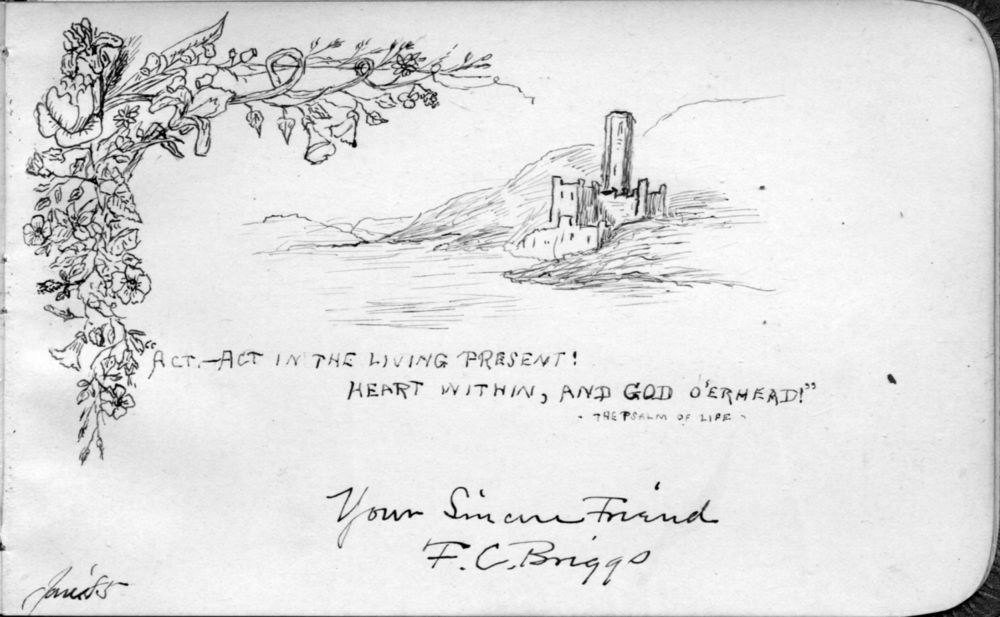 "ACT,—ACT IN THE LIVING PRESENT!
HEART WITHIN, AND GOD O'ERHEAD!"
- THE PSALM OF LIFE -
Your Sincere Friend
F. C. Briggs